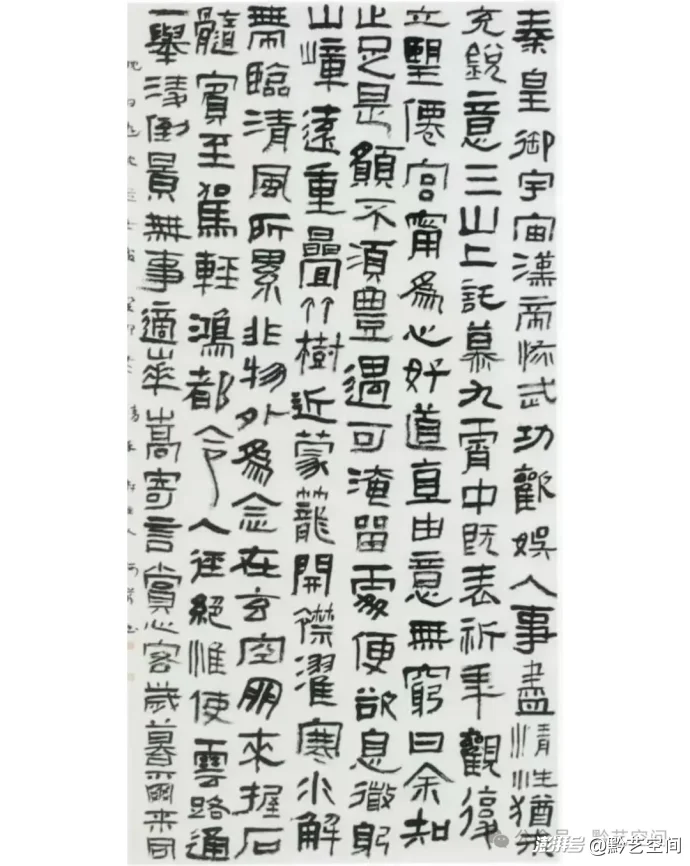 秦皇御宇宙漢帝恢武功歡娛人事盡情性猶未
充銳意三山上託慕九霄中既表祈年觀復
立望僊宮甯為心好道直由意無窮曰余知
止足是願不須豊遇可淹留處便欲息微躬
山嶂遠重疊竹樹近蒙蘢開襟濯寒水解
帶臨清風所累非物外為念在玄空朋來握石
髓賓至駕輕鴻都令人徑絕惟使雲路通
一舉淩倒景無事適華嵩寄言賞心客歲暮爾來同
沈約遊沈道士館癸卯
公众号 · 黔艺空间
澎湃号@黔艺空间